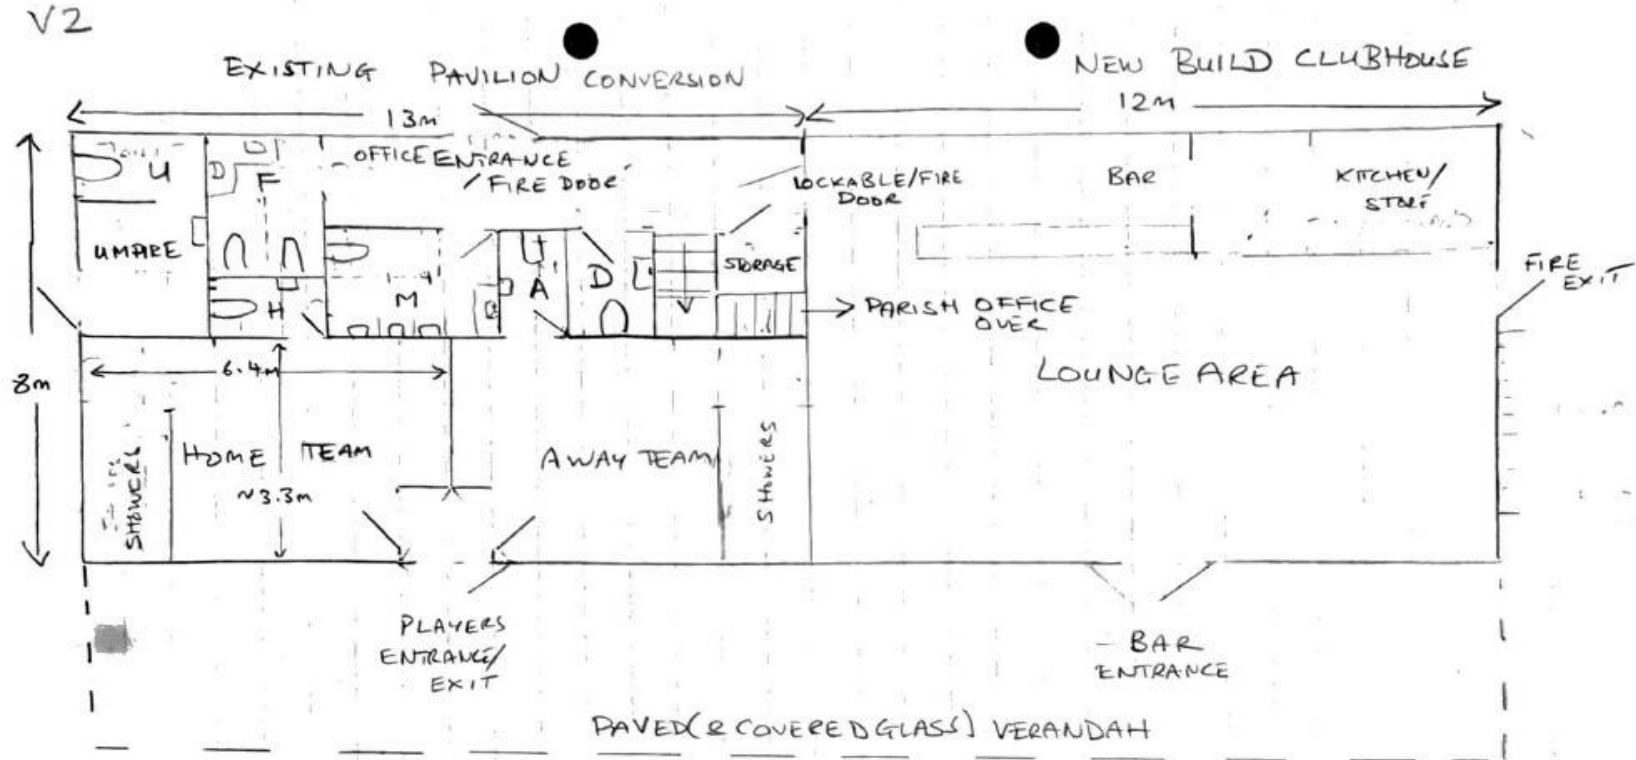 V2
EXISTING PAVILION CONVERSION
NEW BUILD CLUBHOUSE
13m
12m
OFFICE ENTRANCE
/ FIRE DOOR
LOCKABLE/FIRE
DOOR
BAR
KITCHEN/
STORE
U
D
F
UMPIRE
H
M
A
D
STORAGE
FIRE
EXIT
PARISH OFFICE
OVER
8m
6.4m
LOUNGE AREA
SHOWERS
HOME TEAM
~3.3m
AWAY TEAM
SHOWERS
PLAYERS
ENTRANCE/
EXIT
BAR
ENTRANCE
PAVED (& COVERED GLASS) VERANDAH